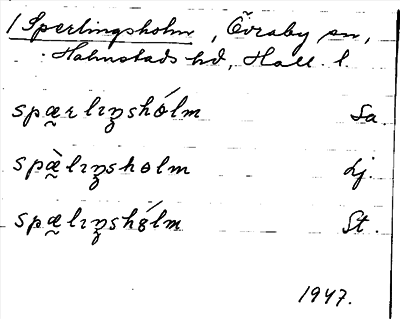 / Sperlingsholm, Övraby sn,
Halmstads hd, Hall. l.
spæ̰rlıŋshólm Sa.
spæ̰̀lıŋsholm Lj.
spæ̰lıŋshólm St.
1947.